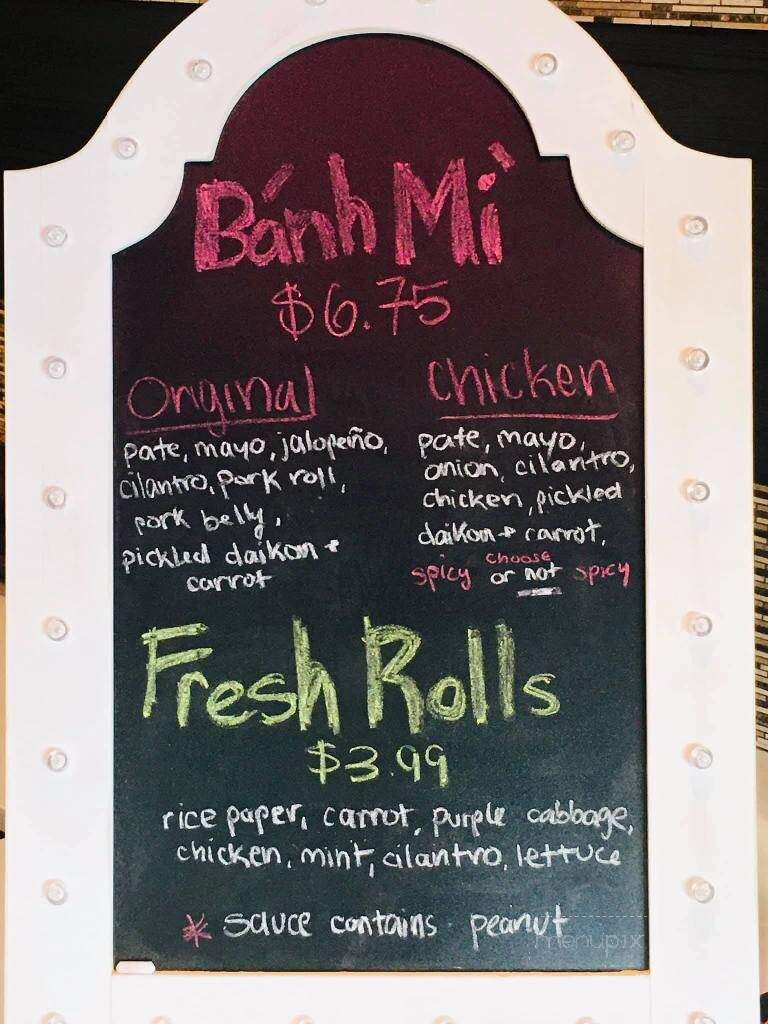 Bánh Mì
$6.75
Original
pate, mayo, jalopeño,
cilantro, pork roll,
pork belly,
pickled daikon +
carrot
chicken
pate, mayo,
onion, cilantro,
chicken, pickled
daikon + carrot,
choose
spicy or not spicy
Fresh Rolls
$3.99
rice paper, carrot, purple cabbage,
chicken, mint, cilantro, lettuce
* sauce contains peanut
menupix